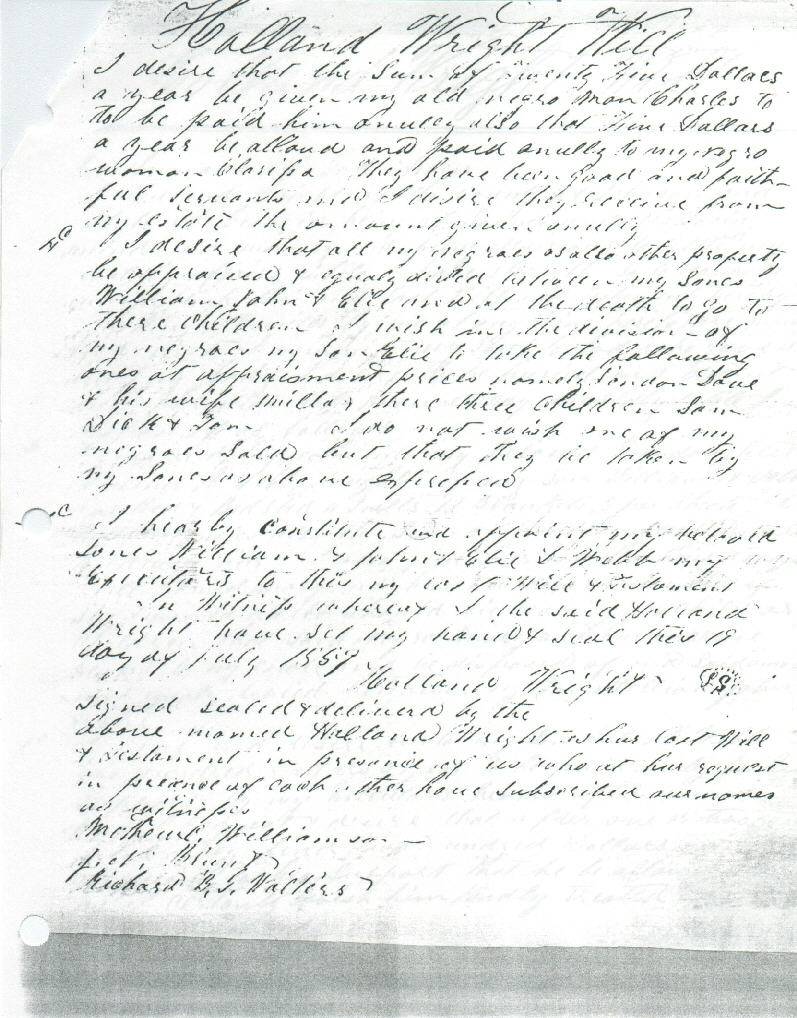 Holland Wright Will
I desire that the Sum of Twenty Five Dollars
a year be given my old negro man Charles to
to be paid him anully also that Five Dollars
a year be alloud and paid anully to my negro
woman Clarisa They have been good and faith-
ful servants and I disire they receive from
my estate the amount given anully
I desire that all my negroes as also other property
be appraised & equaly divided between my Sones
William, John & Elie and at the death to go to
there Children I wish in the division of
my negroes my Son Elie to take the following
ones at appraisment prices namely London Dave
& his wife Milla & there three Children Sam
Dick & Tom I do not wish one of my
negroes Sold but that they be taken by
my Sones as above expressed
I hearby Constitute and appoint my beloved
Sones William & John & Elie S Webb my
Executors to this my last Will & Testament
In Witness whereof I the said Holland
Wright have set my hand & seal this 19
day of July 1857
Holland Wright
signed sealed & deliverd by the
above named Holland Wright as her last Will
& Testament in presence of us who at her request
in presence of each other have subscribed our names
as witness
Williamson
Blunt
Richard B. J. Walters